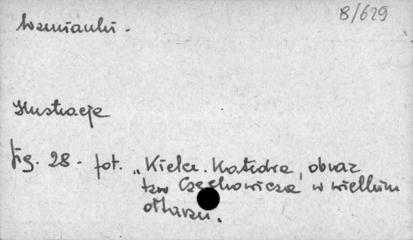 8/629
Wzmianki.
Ilustracje
fig. 28 - fot. „Kielce. Katedra, obraz
tzw Czechowicza w wielkim
ołtarzu.